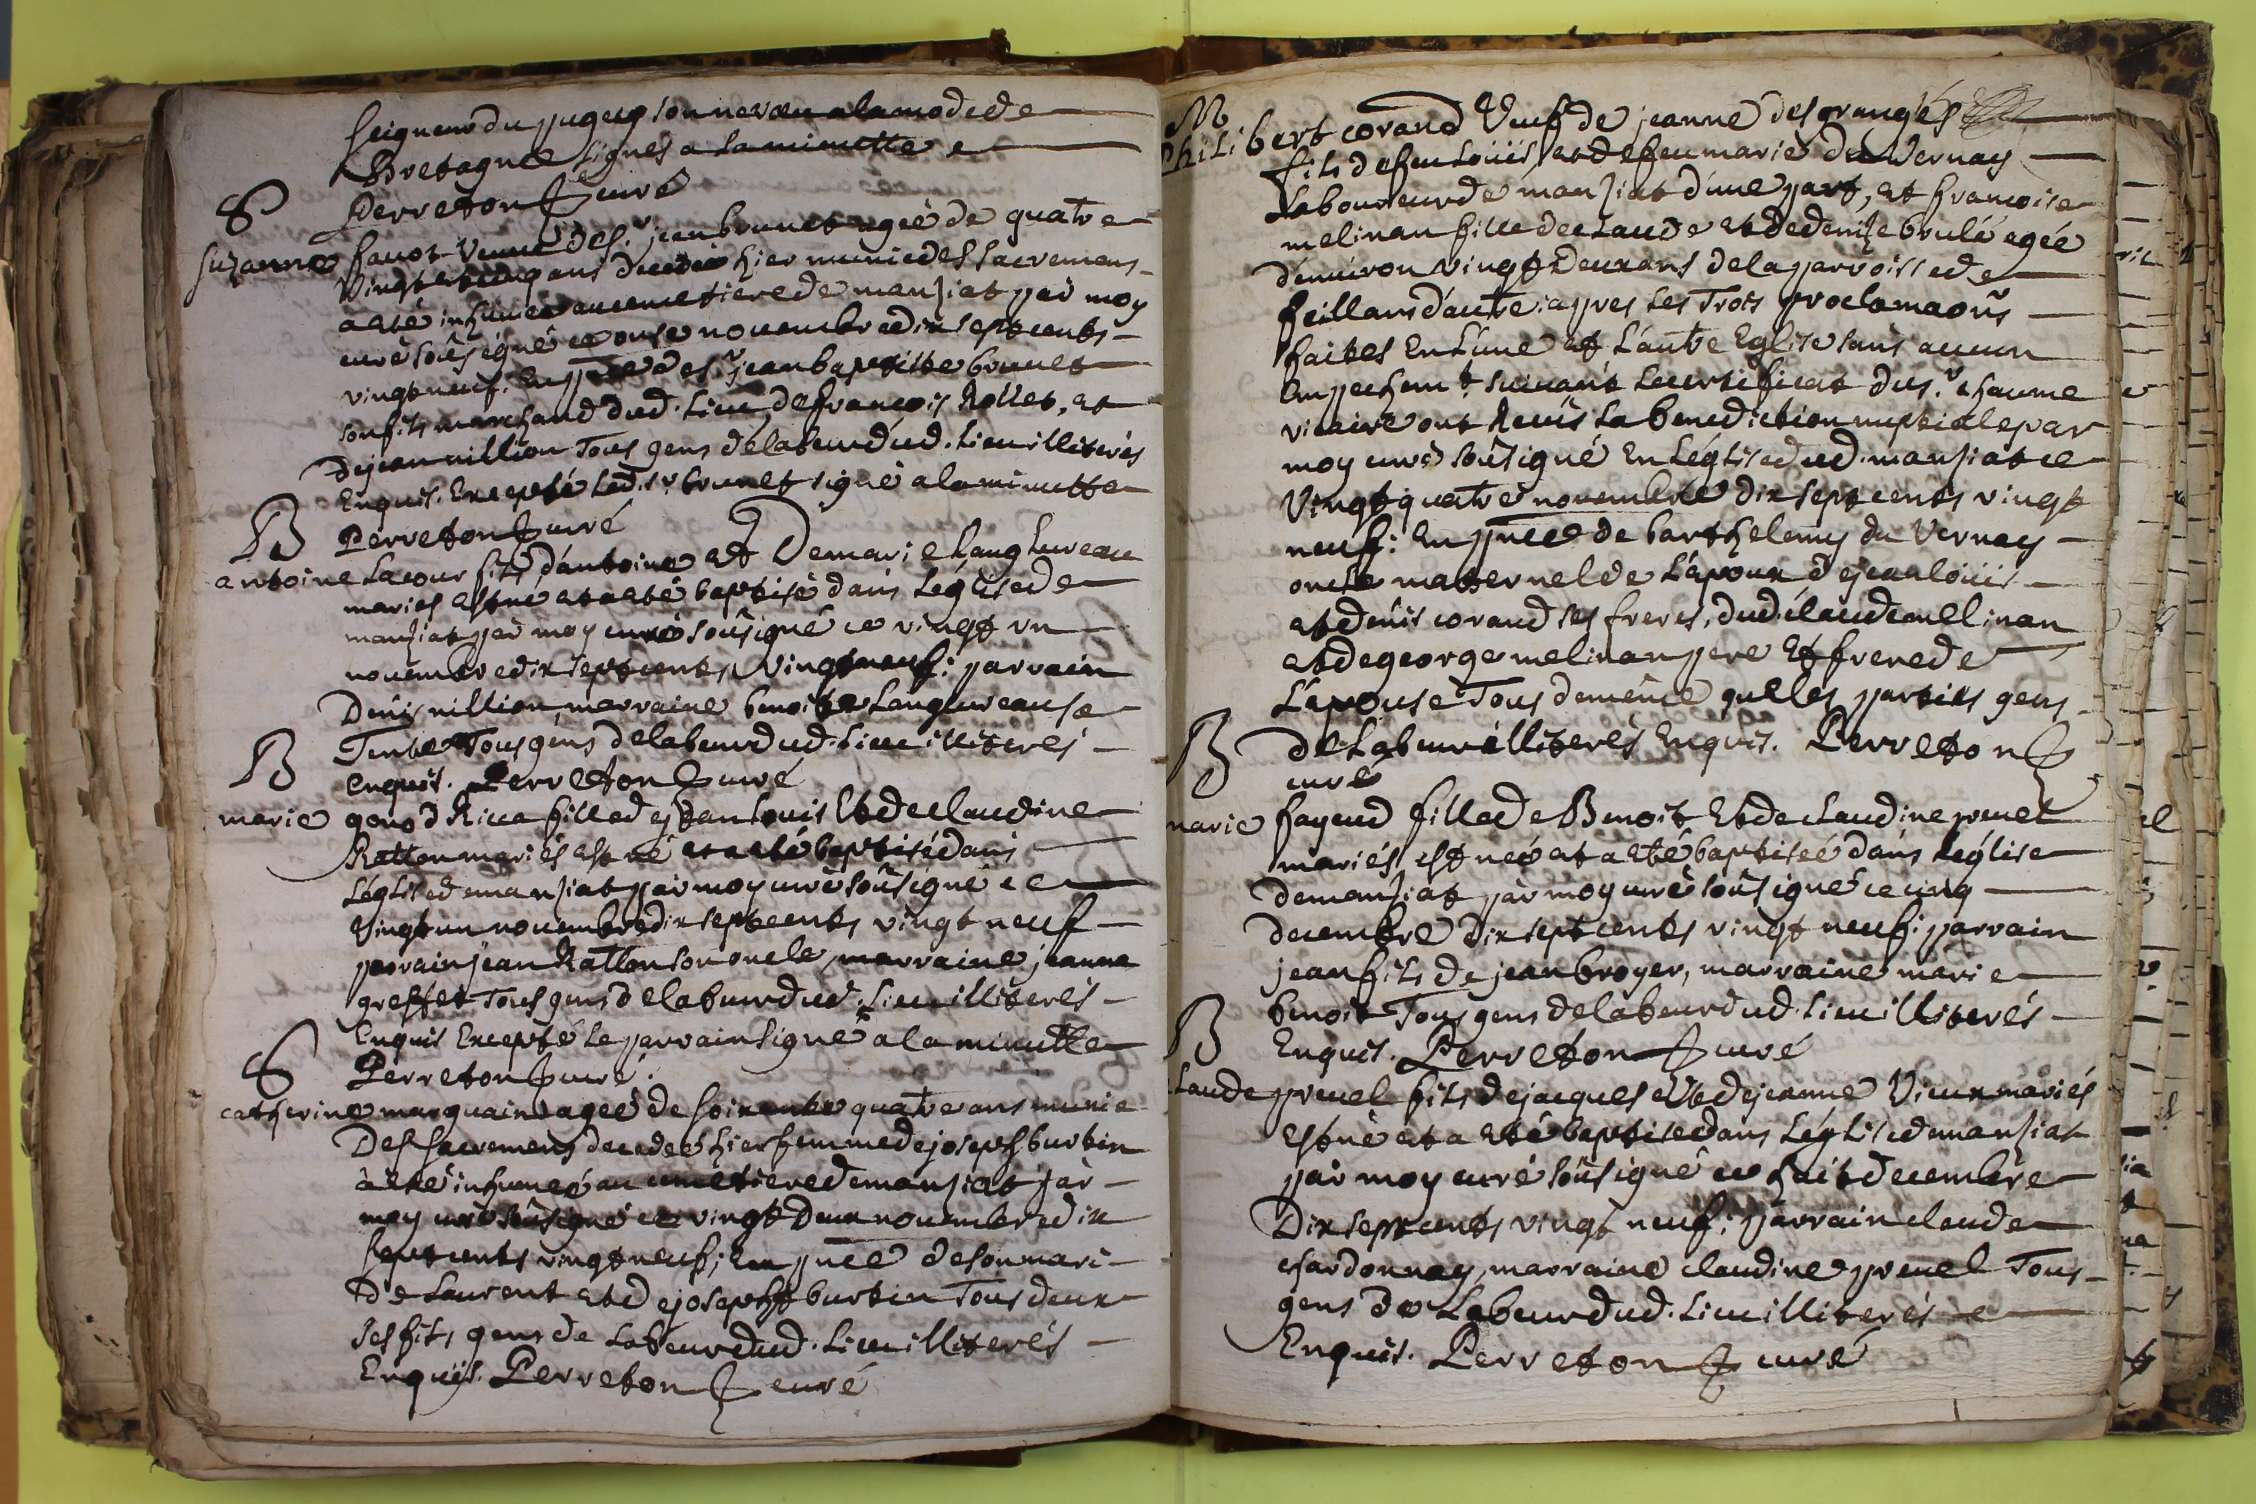 seigneur du puget son neveu a la mode de
Bretagne signés a la minutte
Perreton curé
S
suzanne favot veuve de s.r jean brunet agée de quatre
vingt et cinq ans decedée hier munie des sacremens
a eté inhumée au cemetiere de manziat par moy
curé soûsigné ce onse novembre dix sept cents
vingt neuf. En pnce de s.r jean baptiste brunet
son fils marchand dud. lieu de françois Rollet, et
de jean nillion Tous gens de labeur dud. lieu illiterés
Enquis. Excepté led. s.r brunet signé a la minutte
Perreton curé
B
antoine Lacour fils d'antoine et De marie Langhureau
mariés est né et a eté baptisé dans Leglise de
manziat par moy curé soûsigné ce vingt un
novembre dix sept cents vingt neuf: parrain
Denis nillion, marraine benoite Langhureau sa
Tente Tous gens de labeur dud. lieu illiterés
enquis. Perreton curé
B
marie gonod Rica fille de jean Louis Et de claudine
Ratton mariés est né et a eté baptisé dans
Léglise de manziat par moy curé soûsigné ce
vingt un novembre dix sept cents vingt neuf
parrain jean Ratton son oncle, marraine jeanne
greffet Tous gens de labeur dud. lieu illiterés
Enquis Excepté Le parrain signé a la minutte
Perreton curé.
S
catherine marguain agée de soixante quatre ans munie
Des sacremens decedée hier femme de joseph burtin
à eté inhumée au cemetiere de manziat par
moy curé soûsigné ce vingt Deux novembre dix
sept cents vingt neuf; En pnce de son mari
De Laurent et de joseph burtin Tous deux
ses fils gens de Labeur dud. lieu illiterés
Enquis. Perreton curé
M
Philibert corand Veuf de jeanne desgranges
fils de feu Loüis, et de feu marie du Vernay
Laboureur de manziat d'une part, et françoise
melinan fille de claude et de denize brulé agée
d'environ vingt deux ans de la parroisse de
feillans d'autre: apres Les Trois proclamaôns
faites En L'une et L'autre Eglise sans aucun
Empechemt suivant Le certificat du s.r chaume
vicaire ont Reçus La benediction nuptiale par
moy curé soûsigné En Léglise dud. manziat ce
Vingt quatre novembre dix sept cents vingt
neuf: En pnce de barthelemy du Vernay
oncle maternel de L'epoux de jean loüis
et denis corand ses freres, dud. claude melinan
et de george melinan pere et frere de
L'epouse Tous de meme quelles parties gens
de Labeur illiterés Enquis. Perreton
curé
B
marie fayend fille de Benoit Et de claudine pruel
mariés est neé et a eté baptiseé dans Léglise
de manziat par moy curé soûsigné ce cinq
decembre dix sept cents vingt neuf: parrain
jean fils de jean broyer, marraine marie
benoit Tous gens de labeur dud. lieu illiterés
Enquis. Perreton curé
B
claude pruel fils de jacques et de jeanne Vieux mariés
Est né et a eté baptisé dans Léglise de manziat
par moy curé soûsigné ce huit decembre
Dix sept cents vingt neuf: parrain claude
chardonnay, marraine claudine pruel Tous
gens de Labeur dud. lieu illiterés
Enquis. Perreton curé